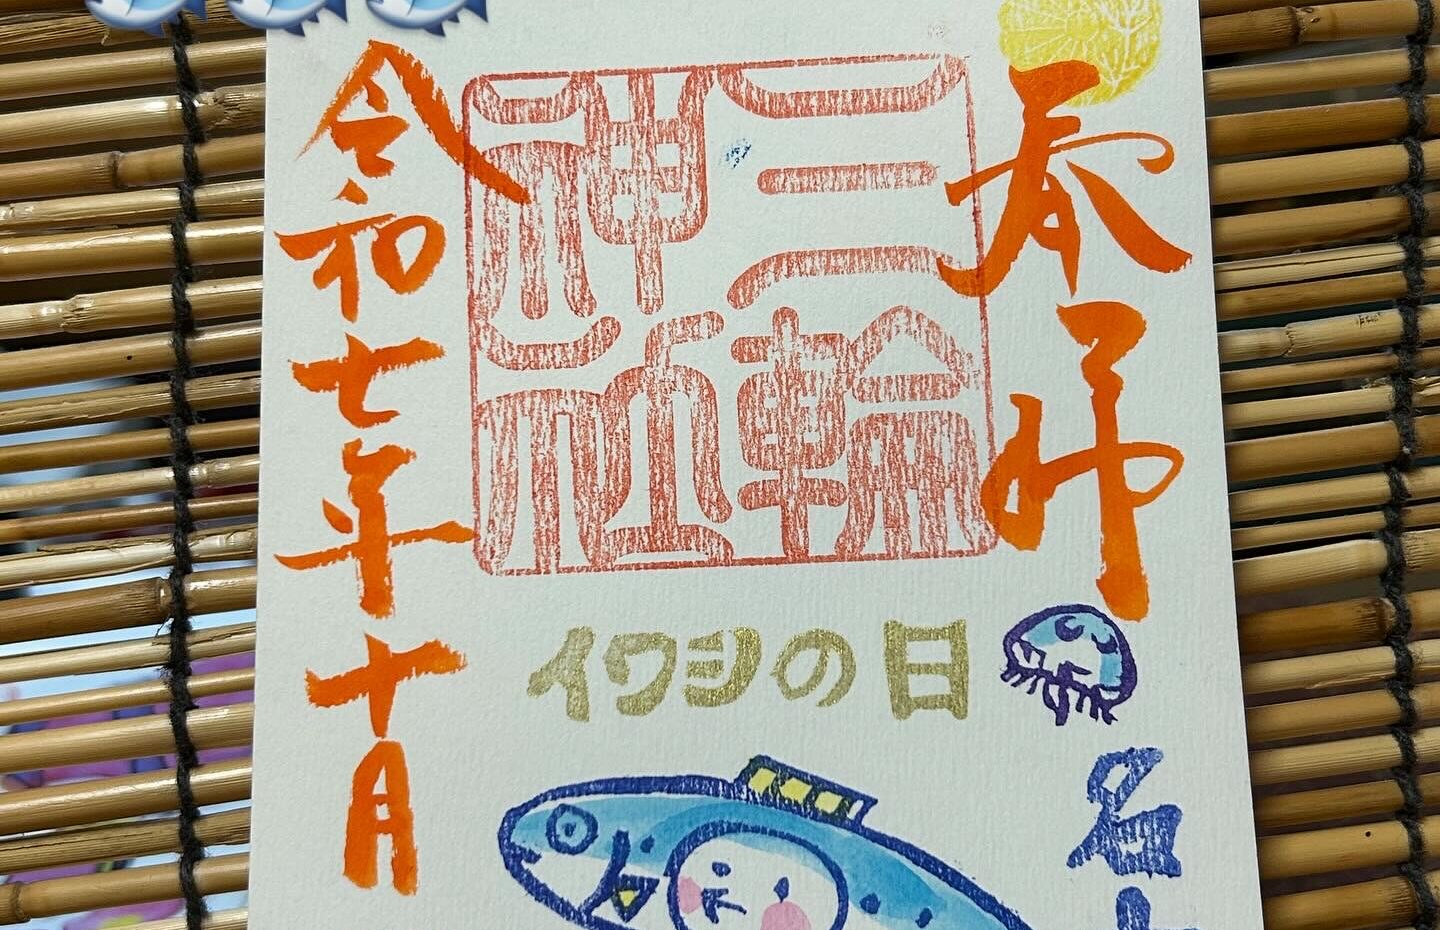 奉拝
三輪
神社
イワシの日
名古
令和七年十月